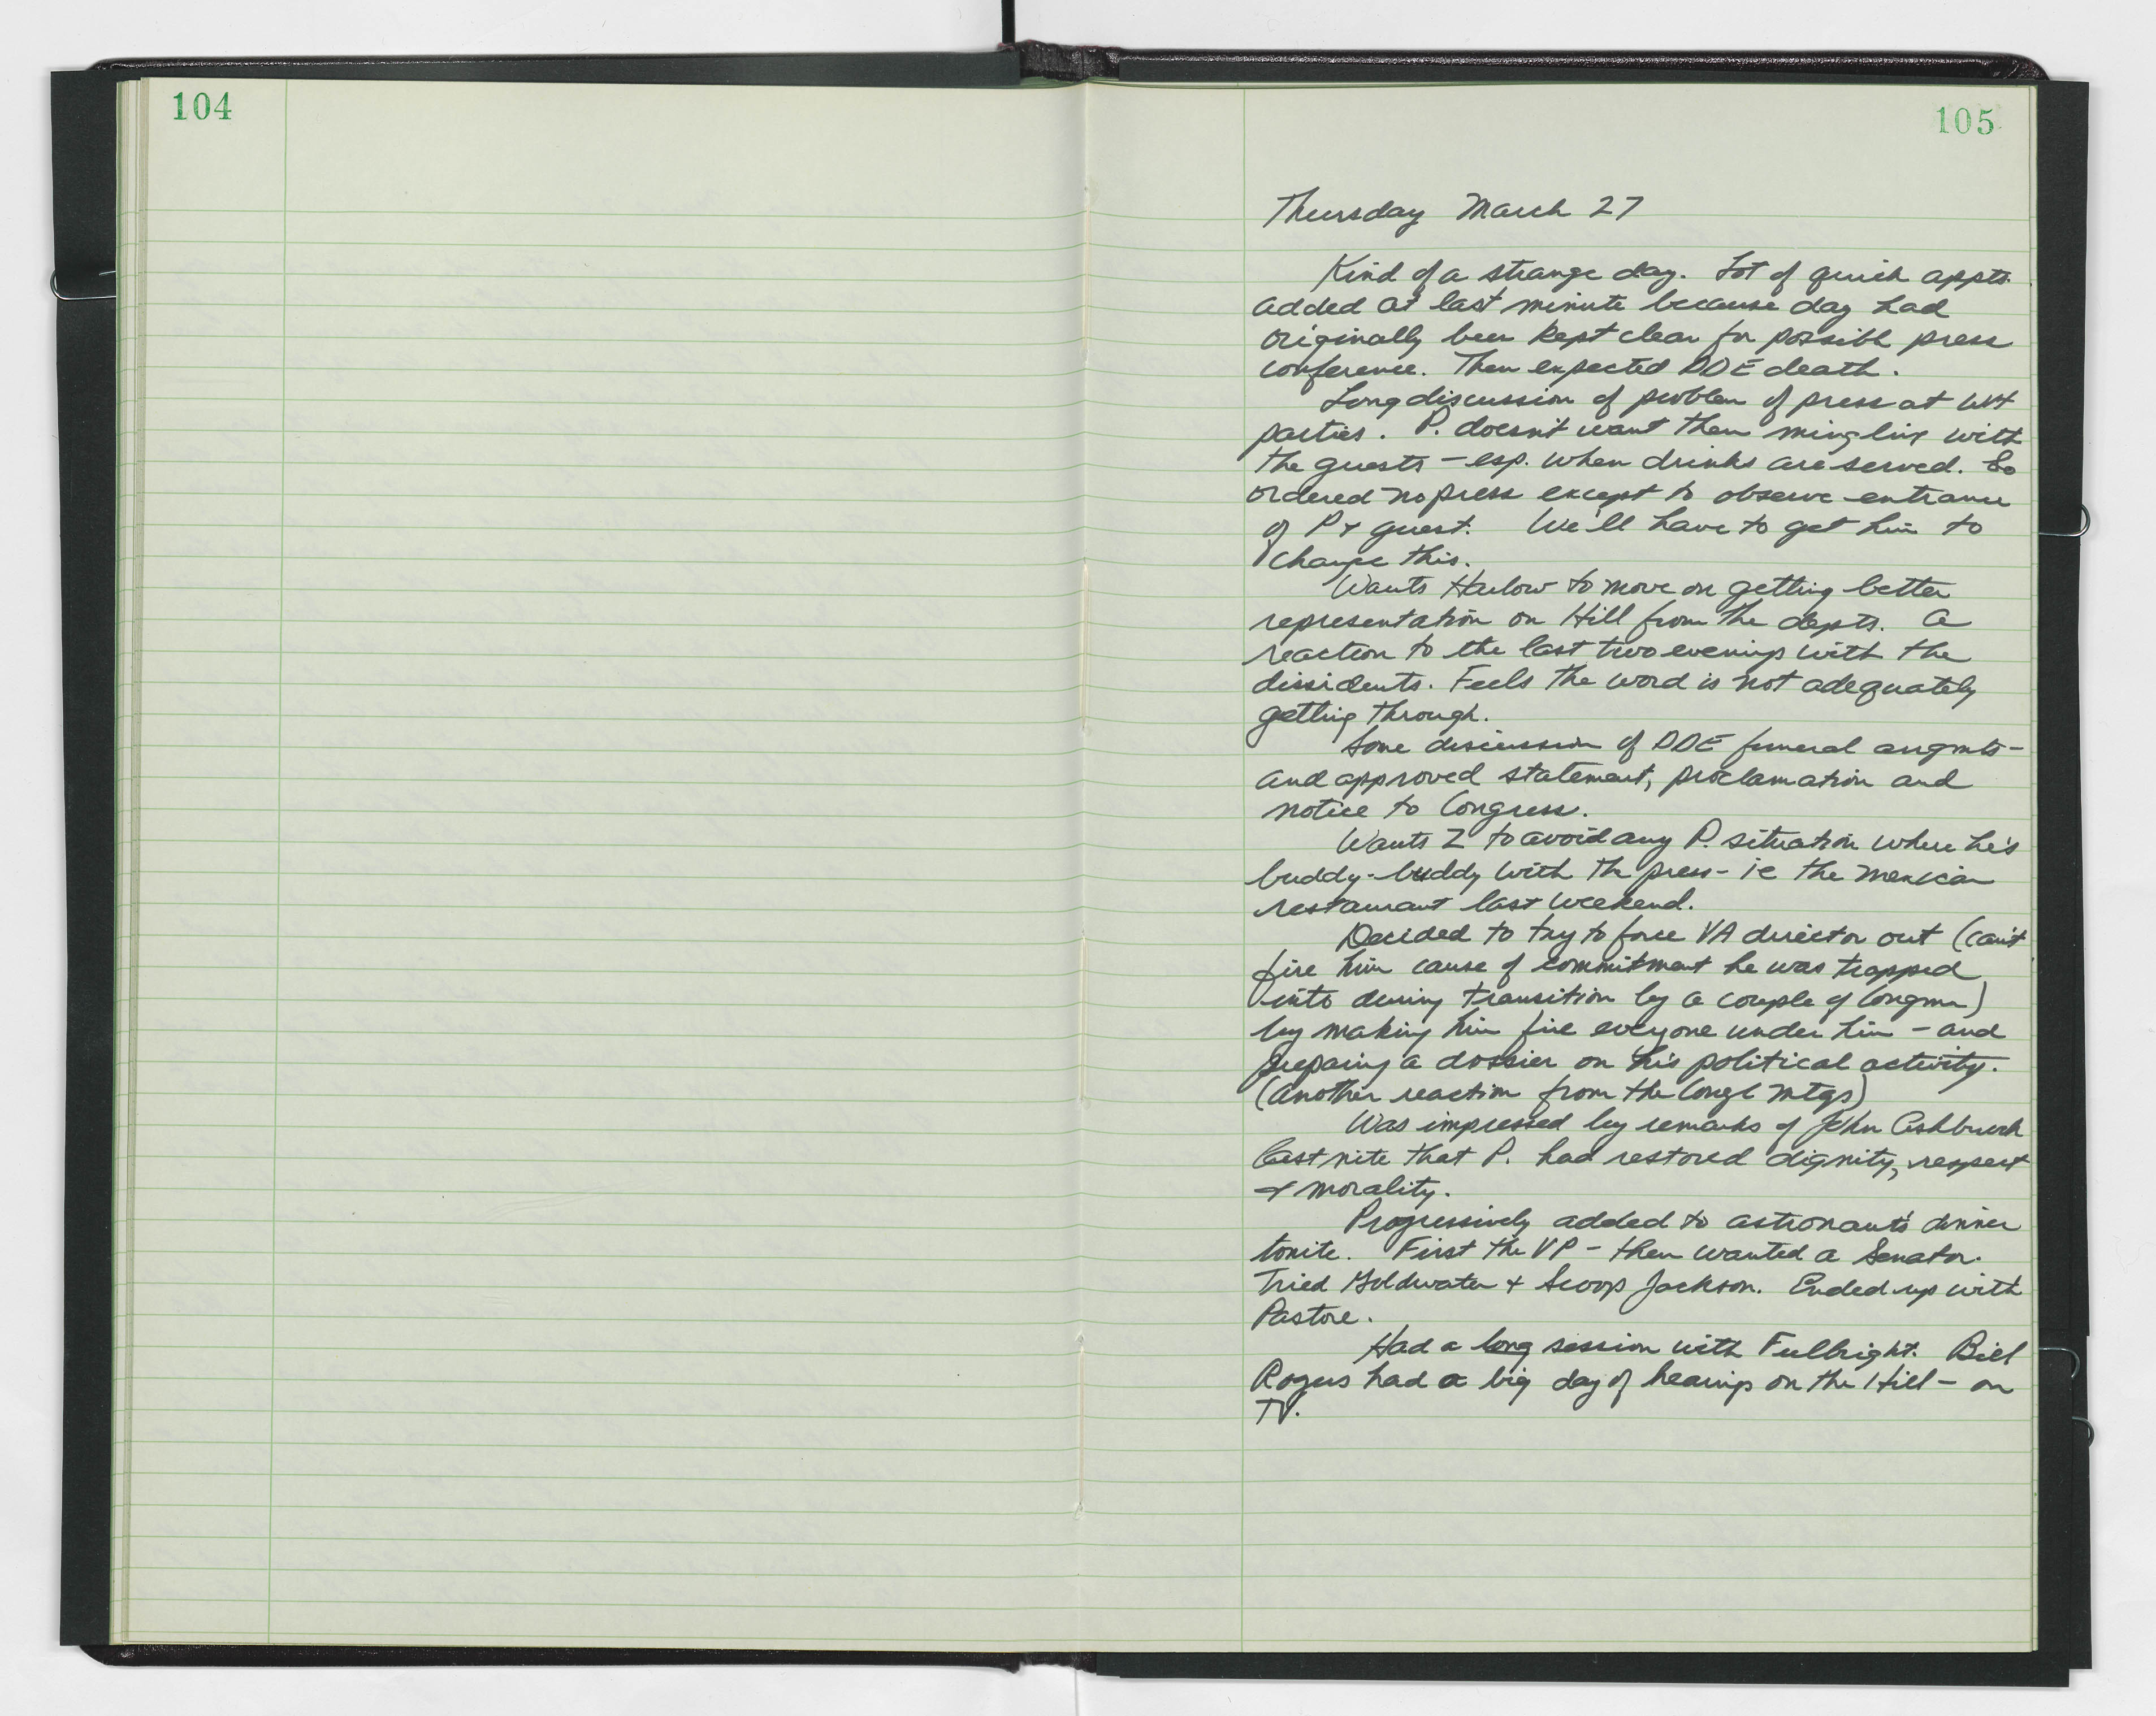 104
105
Thursday March 27
Kind of a strange day. Lot of quick appts.
added at last minute because day had
originally been kept clear for possible press
conference. Then expected DDE death.
Long discussion of problem of press at WH
parties. P. doesn't want them mingling with
the guests - esp. when drinks are served. So
ordered no press except to observe entrance
of P + guest. We'll have to get him to
change this.
Wants Harlow to move on getting better
representation on Hill from the depts. A
reaction to the last two evenings with the
dissidents. Feels the word is not adequately
getting through.
Some discussion of DDE funeral arrgmts -
and approved statement, proclamation and
notice to Congress.
Wants Z to avoid any P. situation where he's
buddy-buddy with the press - ie the Mexican
restaurant last weekend.
Decided to try to force VA director out (can't
fire him cause of commitment he was trapped
into during transition by a couple of Congmn)
by making him fire everyone under him - and
preparing a dossier on his political activity.
(Another reaction from the Congl mtgs)
Was impressed by remarks of John Ashbrook
last nite that P. had restored dignity, respect
+ morality.
Progressively added to astronauts dinner
tonite. First the VP - then wanted a Senator.
Tried Goldwater + Scoop Jackson. Ended up with
Pastore.
Had a long session with Fulbright. Bill
Rogers had a big day of hearings on the Hill - on
TV.